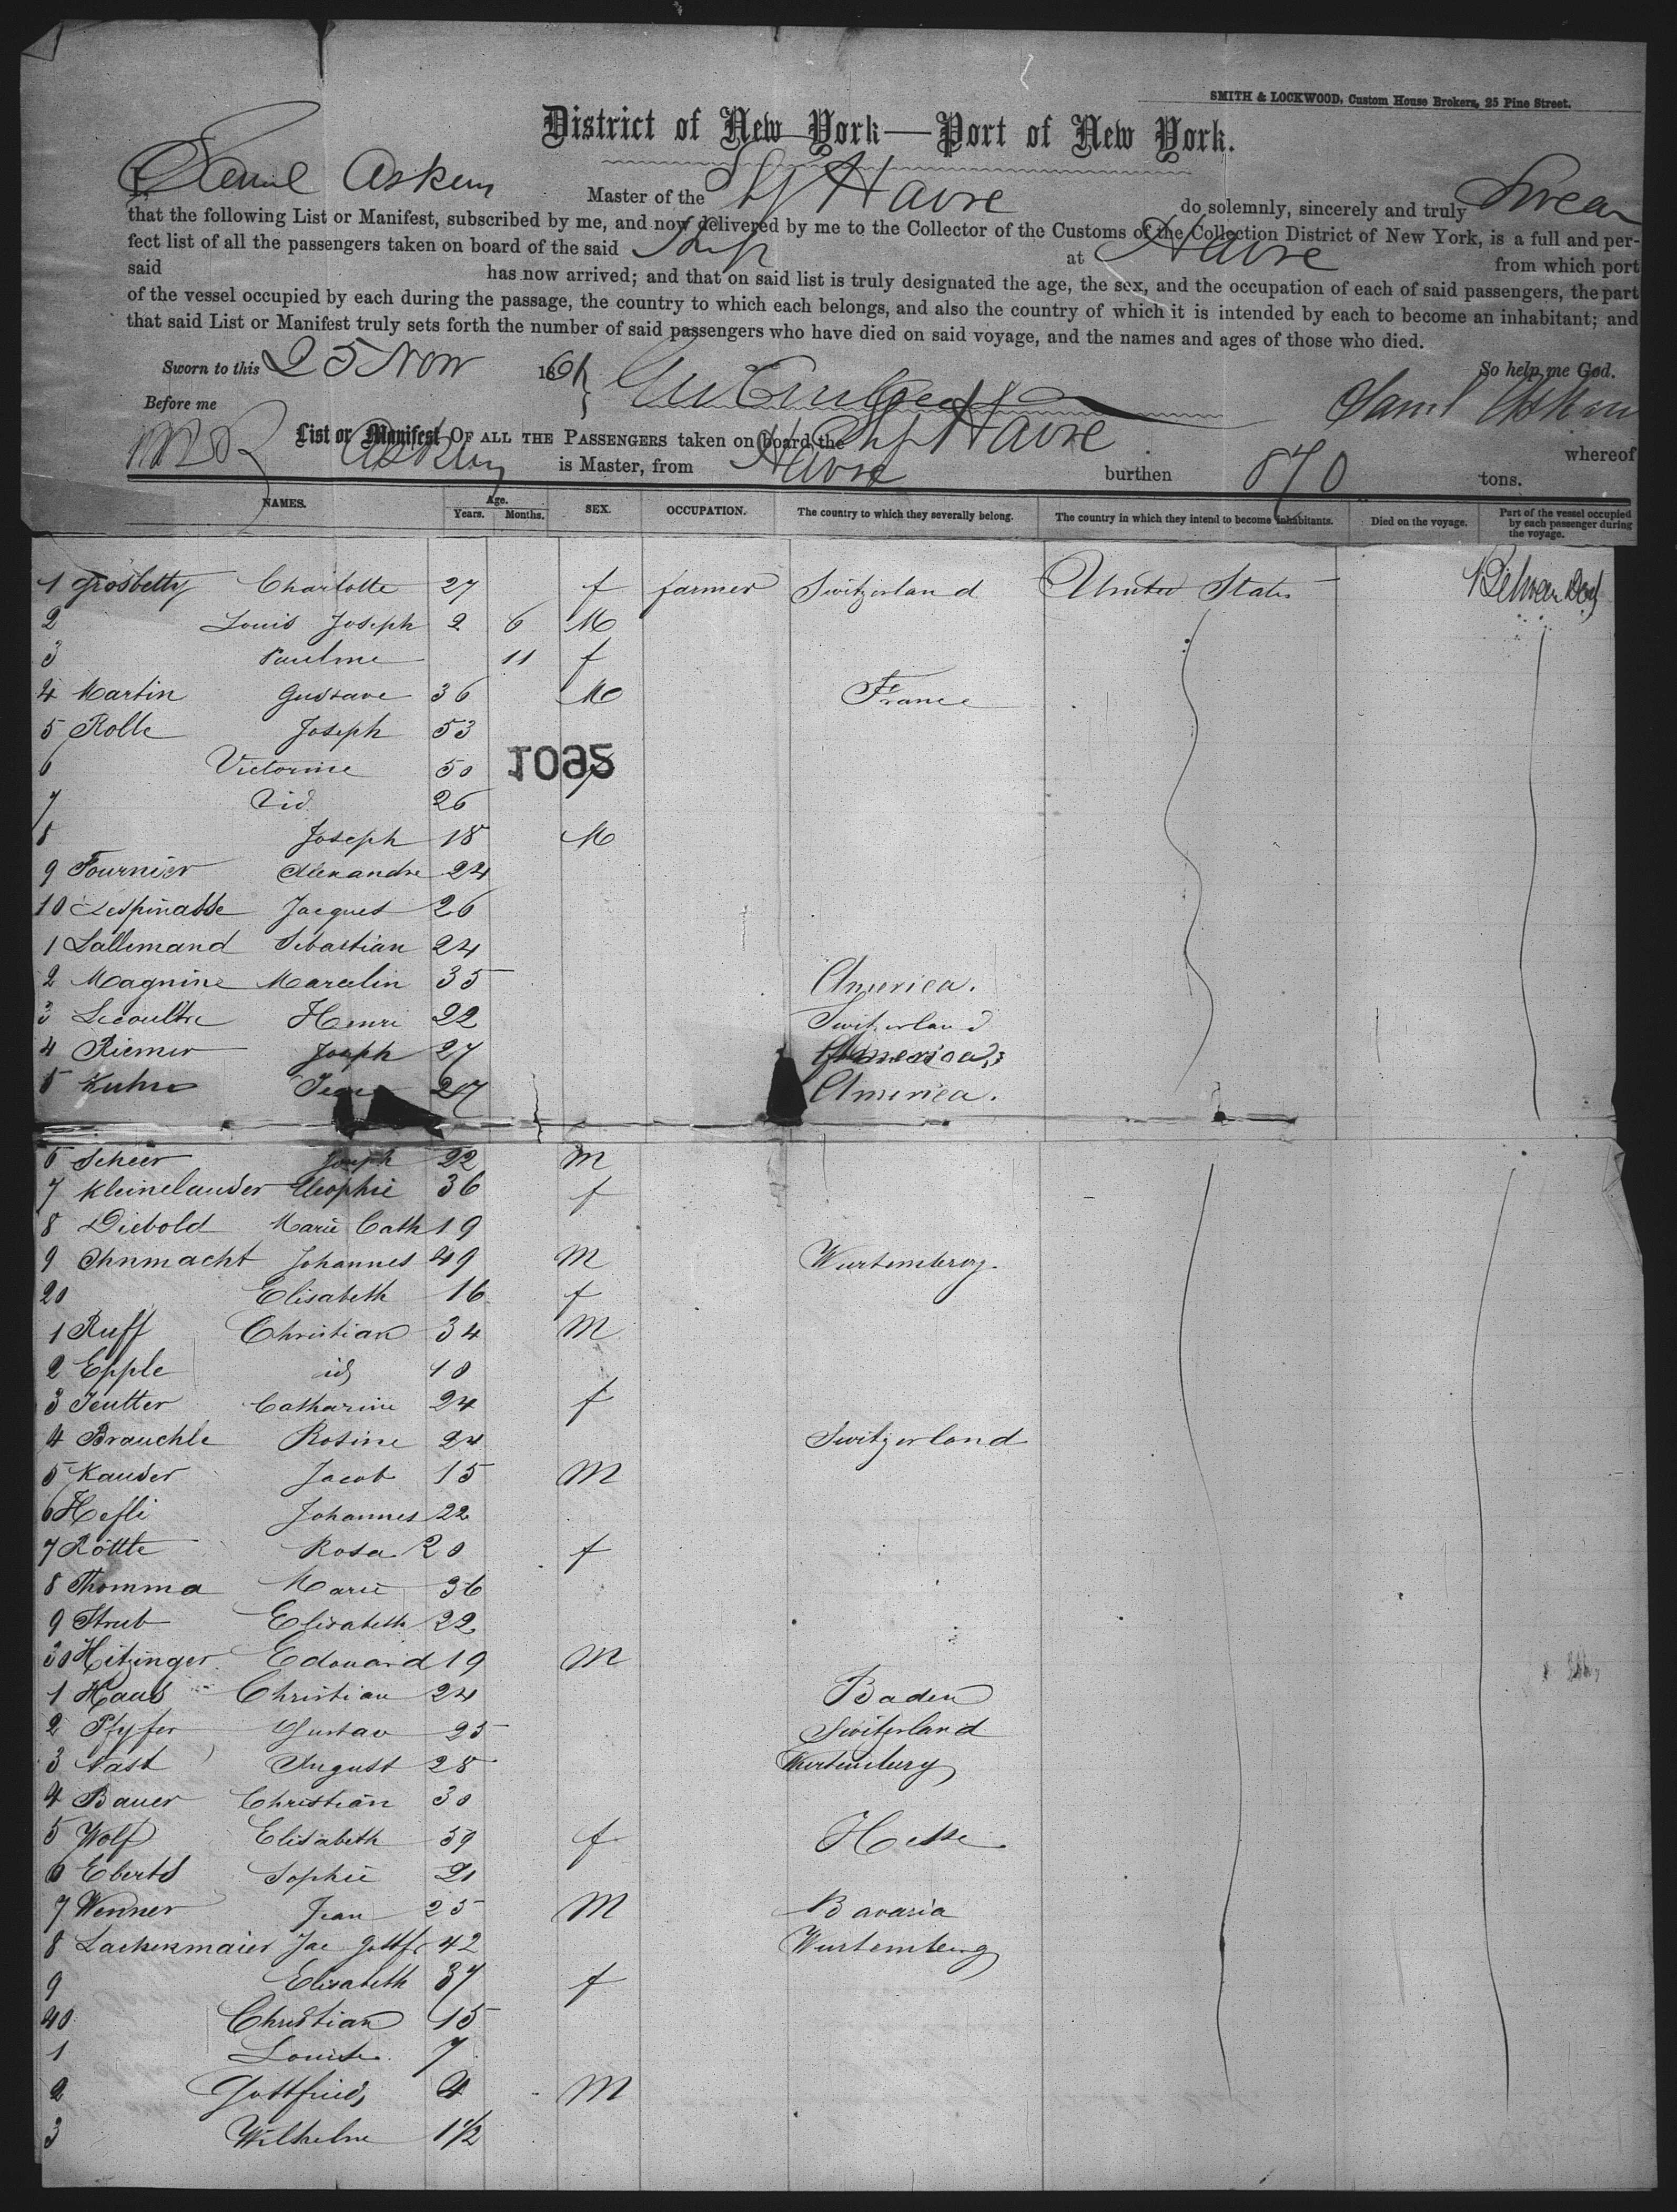 SMITH & LOCKWOOD, Custom House Brokers, 25 Pine Street.
District of New York—Port of New York.
I, Askew Master of the Ship Havre do solemnly, sincerely and truly Swear
that the following List or Manifest, subscribed by me, and now delivered by me to the Collector of the Customs of the Collection District of New York, is a full and per-
fect list of all the passengers taken on board of the said Ship at Havre from which port
said has now arrived; and that on said list is truly designated the age, the sex, and the occupation of each of said passengers, the part
of the vessel occupied by each during the passage, the country to which each belongs, and also the country of which it is intended by each to become an inhabitant; and
that said List or Manifest truly sets forth the number of said passengers who have died on said voyage, and the names and ages of those who died.
Sworn to this 25 Nov 186 So help me God.
Before me Saml Askew
List or Manifest OF ALL THE PASSENGERS taken on board the Ship Havre whereof
Askew is Master, from Havre burthen 870 tons.
NAMES. Age. Years. Months. SEX. OCCUPATION. The country to which they severally belong. The country in which they intend to become inhabitants. Died on the voyage. Part of the vessel occupied by each passenger during the voyage.
1 Grosbetty Charlotte 27 f farmer Switzerland United States
2 Louis Joseph 2 6 M
3 Pauline 11 f
4 Martin Gustave 36 M France
5 Rolle Joseph 53
6 Victorine 50 f
1095
7 id 26
8 Joseph 18 M
9 Fournier Alexandre 24
10 Lespinasse Jacques 26
1 Lallemand Sebastian 24
2 Magnine Marcelin 35 America.
3 Lecoultre Henri 22 Switzerland
4 Riemer Joseph 27 America
5 Kuhn 27 America.
6 Scheer Joseph 22 M
7 Kleinelauder 36 f
8 Diebold Marie Cath 19
9 Ohnmacht Johannes 49 M Wurtemberg.
20 Elisabeth 16 f
1 Ruff Christian 34 M
2 Epple id 18
3 Jeutter Catharine 24 f
4 Brauchle Rosine 24 Switzerland
5 Kauder Jacob 15 M
6 Hefli Johannes 22
7 Röttle Rosa 20 f
8 Thomma Marie 36
9 Strub Elisabeth 22
30 Hitzinger Edouard 19 M
1 Haas Christian 24 Baden
2 Pfyfer Gustav 25 Switzerland
3 Nast August 28 Wurtemburg
4 Bauer Christian 30
5 Wolf Elisabeth 59 f Hesse
6 Eberts Sophie 21
7 Wenner Jean 25 M Bavaria
8 Lackenmaier Jac Gottfr 42 Wurtemberg
9 Elisabeth 37 f
40 Christian 15
1 Louise 7
2 Gottfried 4 M
3 Wilhelm 1 1/2